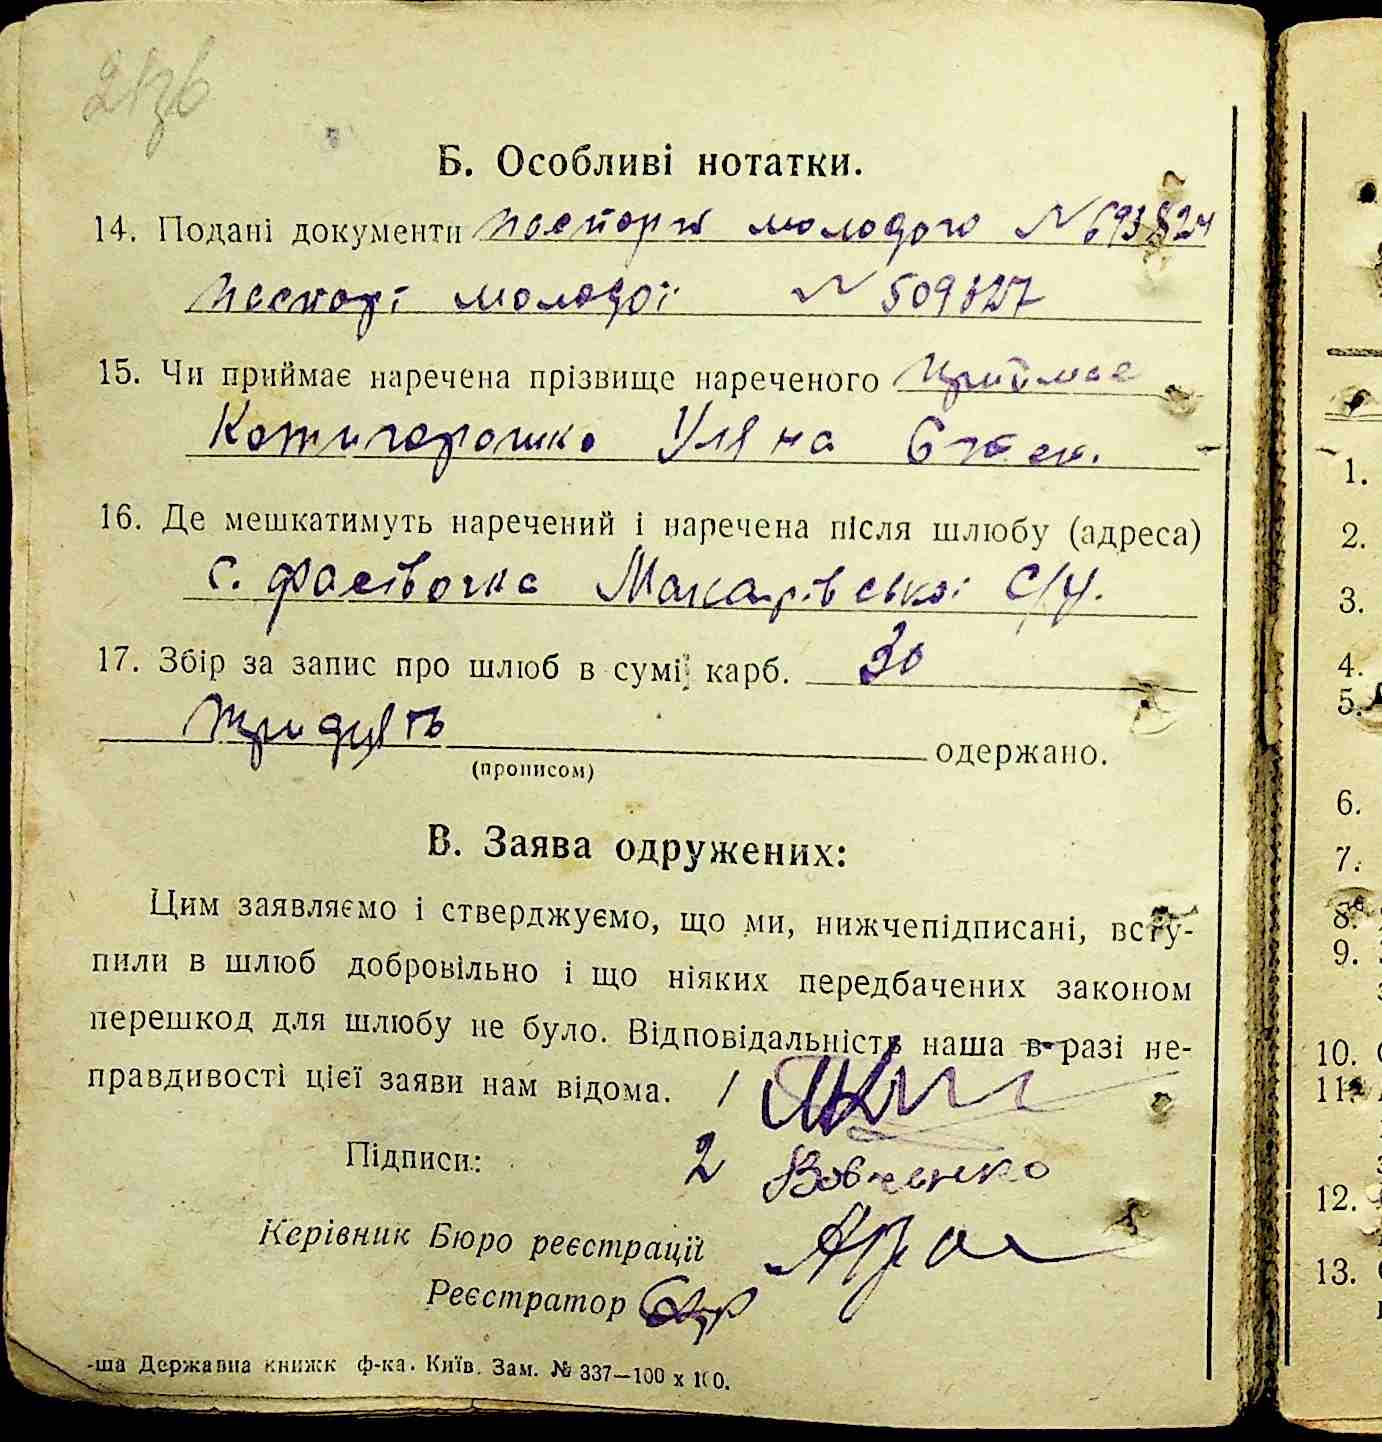 Б. Особливі нотатки.
14. Подані документи паспорт молодого № 693824
паспорт молодої № 509827
15. Чи приймає наречена прізвище нареченого приймає
Котигорошко Уляна
16. Де мешкатимуть наречений і наречена після шлюбу (адреса)
с. Фасівочка Макарівської с/р.
17. Збір за запис про шлюб в сумі карб. 30
тридцять одержано.
(прописом)
В. Заява одружених:
Цим заявляємо і стверджуємо, що ми, нижчепідписані, всту-
пили в шлюб добровільно і що ніяких передбачених законом
перешкод для шлюбу не було. Відповідальність наша в разі не-
правдивості цієї заяви нам відома. 1
Підписи: 2 Вовченко
Керівник Бюро реєстрації
Реєстратор
-ша Державна книжк ф-ка. Київ. Зам. № 337—100 х 100.
1.
2.
3.
4.
5.
6.
7.
8.
9.
10.
11.
12.
13.